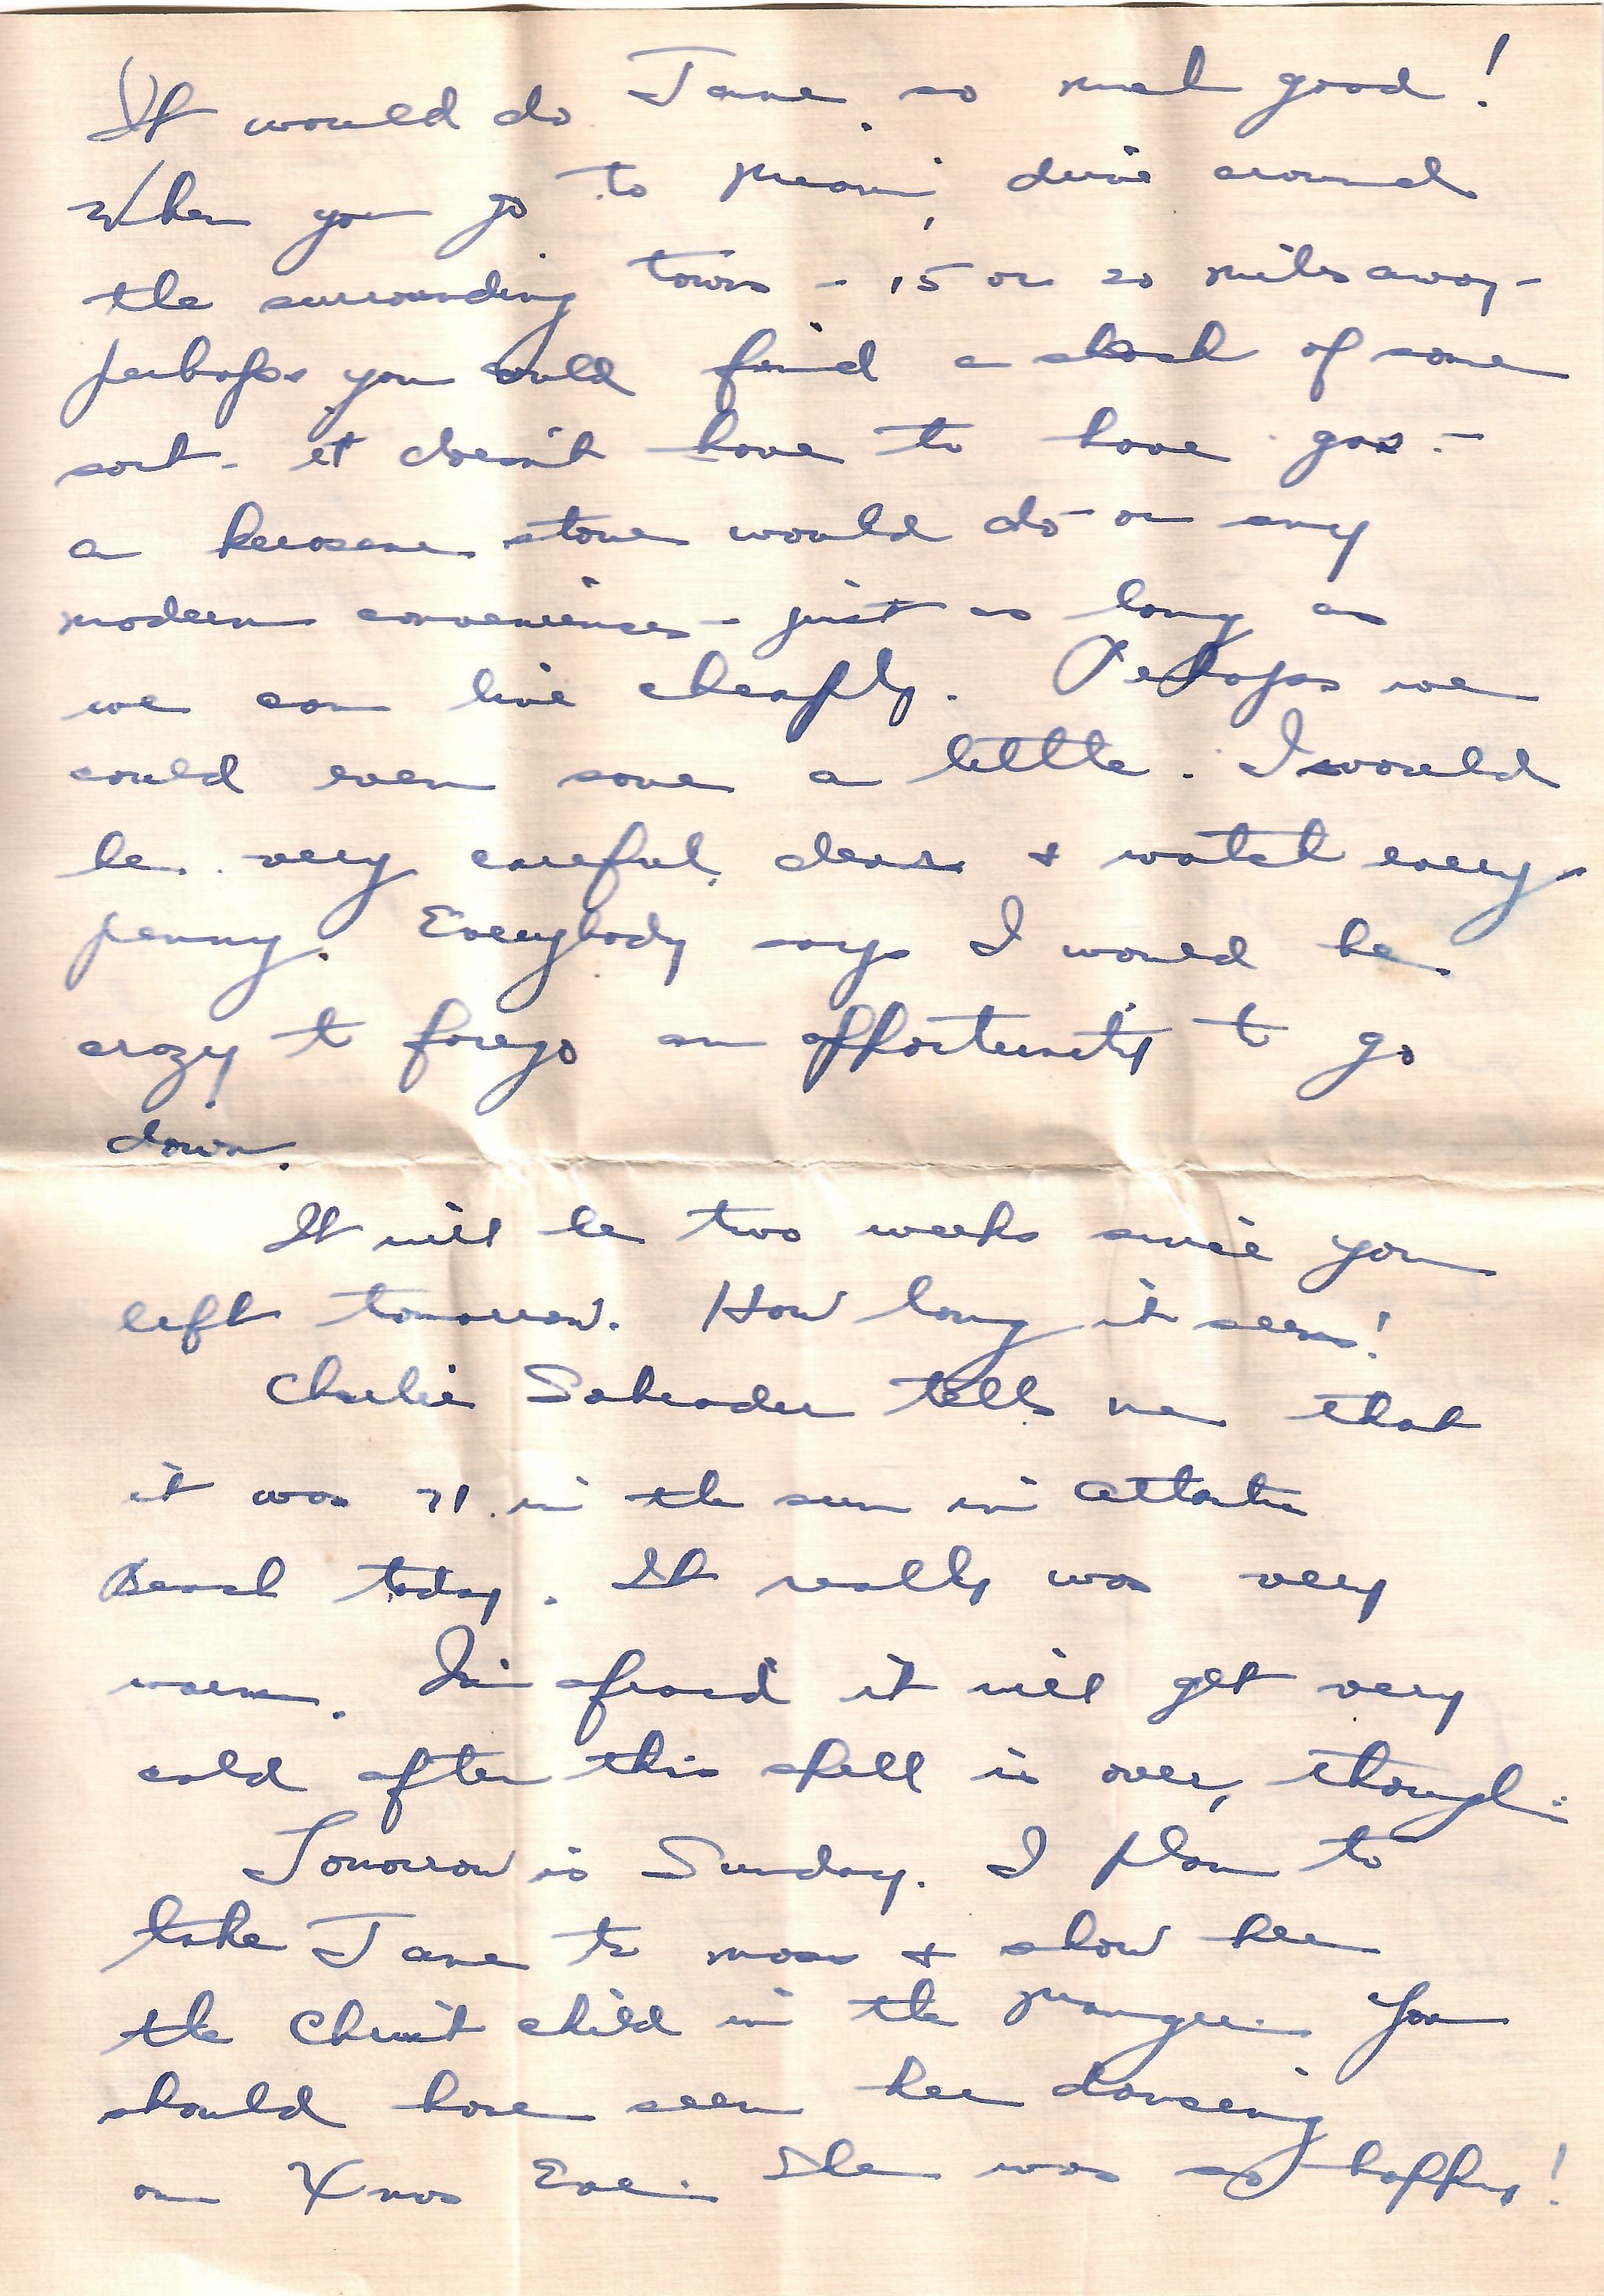 It would do Jane so much good!
When you go to Miami, drive around
the surrounding towns - 15 or 20 miles away -
perhaps you could find a shack of some
sort - it doesn't have to have gas -
a kerosene stove would do - or any
modern conveniences - just as long as
we can live cheaply. Perhaps we
could even save a little. I would
be very careful, dear & watch every
penny. Everybody says I would be
crazy to forego an opportunity to go
down.
It will be two weeks since you
left tomorrow. How long it seems!
Charlie Schrader tells me that
it was 71 in the sun in Atlantic
Beach today. It really was very
warm. I'm afraid it will get very
cold after this spell is over, though.
Tomorrow is Sunday. I plan to
take Jane to mass & show her
the Christ child in the manger. You
should have seen her dancing
on Xmas Eve. She was so happy!